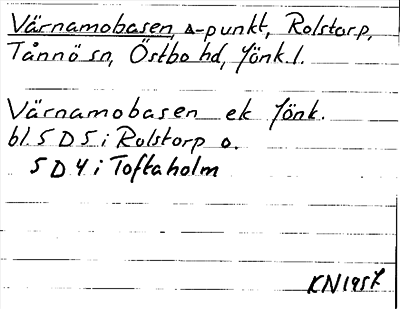 Värnamobasen, △-punkt, Rolstorp,
Tånnö sn, Östbo hd, Jönk. l.
Värnamobasen ek Jönk.
bl. 5 D 5 i Rolstorp o.
5 D 4 i Toftaholm
KN 1957